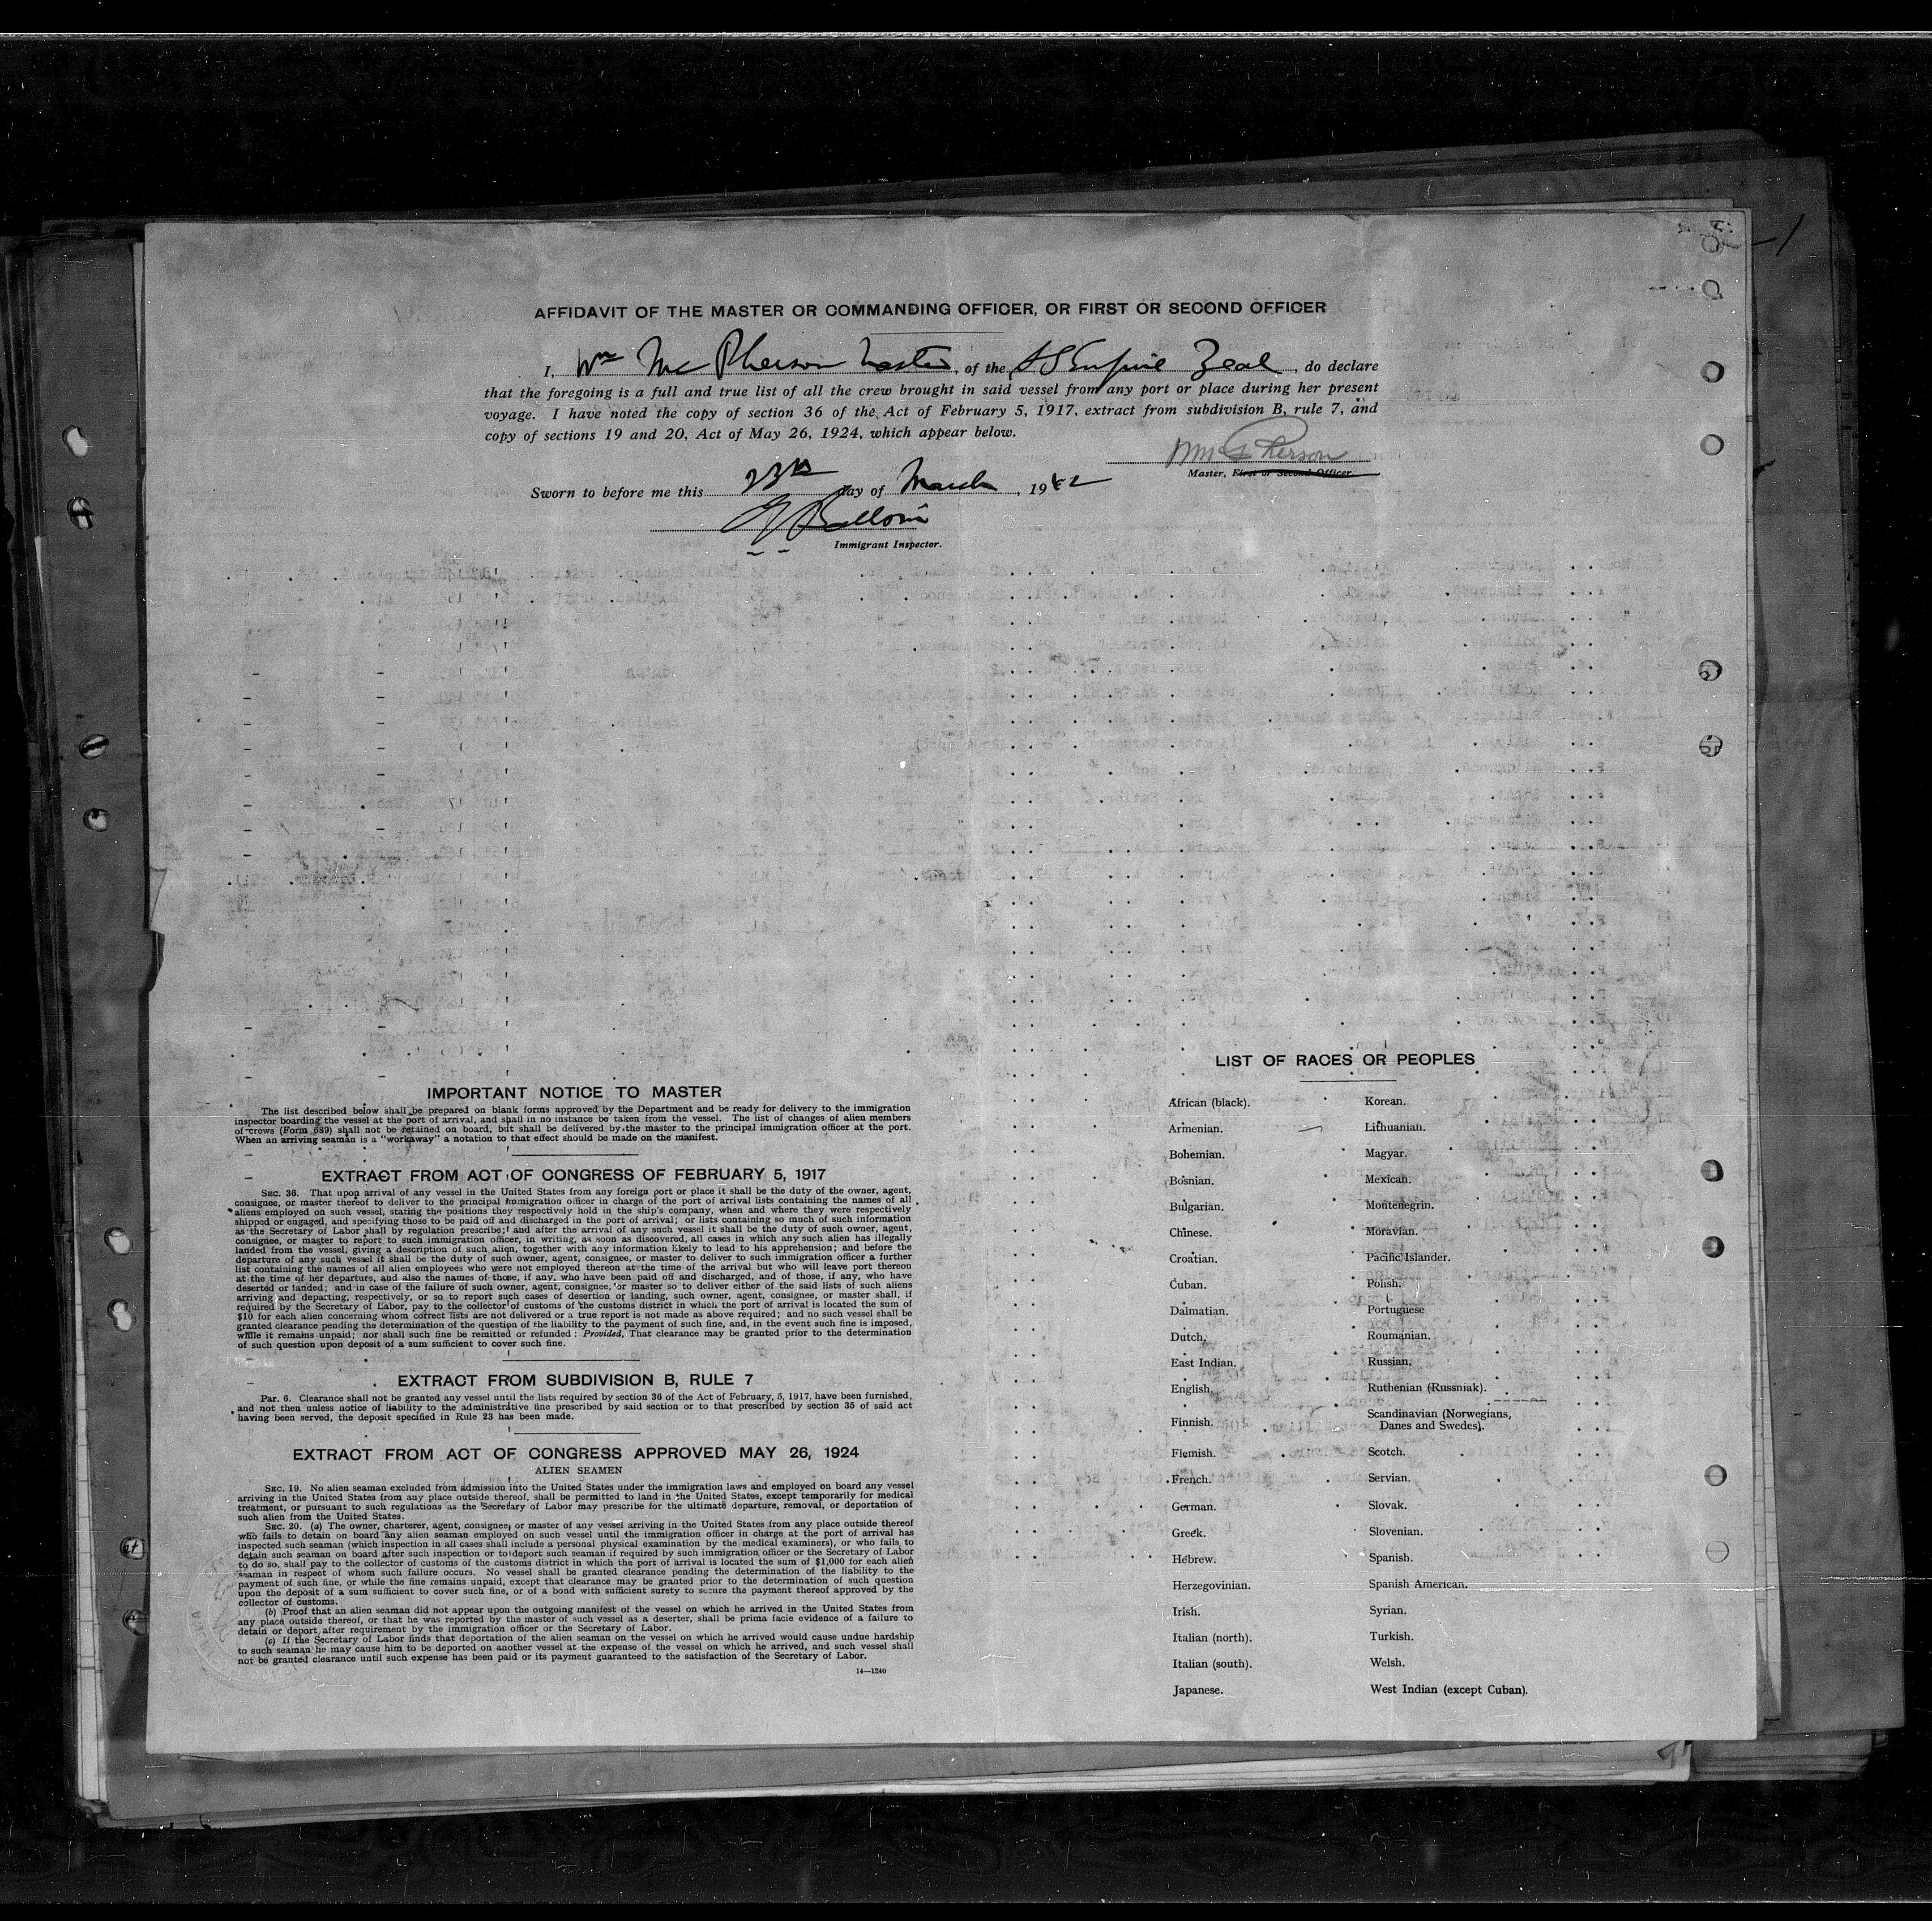 AFFIDAVIT OF THE MASTER OR COMMANDING OFFICER, OR FIRST OR SECOND OFFICER
I, Wm McPherson Master, of the SS Empire Zeal, do declare
that the foregoing is a full and true list of all the crew brought in said vessel from any port or place during her present
voyage. I have noted the copy of section 36 of the Act of February 5, 1917, extract from subdivision B, rule 7, and
copy of sections 19 and 20, Act of May 26, 1924, which appear below.
Wm McPherson
Master, First or Second Officer.
Sworn to before me this 23rd day of March, 1942
Immigrant Inspector.
IMPORTANT NOTICE TO MASTER
The list described below shall be prepared on blank forms approved by the Department and be ready for delivery to the immigration
inspector boarding the vessel at the port of arrival, and shall in no instance be taken from the vessel. The list of changes of alien members
of crews (Form 689) shall not be retained on board, but shall be delivered by the master to the principal immigration officer at the port.
When an arriving seaman is a "workaway" a notation to that effect should be made on the manifest.
EXTRACT FROM ACT OF CONGRESS OF FEBRUARY 5, 1917
SEC. 36. That upon arrival of any vessel in the United States from any foreign port or place it shall be the duty of the owner, agent,
consignee, or master thereof to deliver to the principal immigration officer in charge of the port of arrival lists containing the names of all
aliens employed on such vessel, stating the positions they respectively hold in the ship's company, when and where they were respectively
shipped or engaged, and specifying those to be paid off and discharged in the port of arrival; or lists containing so much of such information
as the Secretary of Labor shall by regulation prescribe; and after the arrival of any such vessel it shall be the duty of such owner, agent,
consignee, or master to report to such immigration officer, in writing, as soon as discovered, all cases in which any such alien has illegally
landed from the vessel, giving a description of such alien, together with any information likely to lead to his apprehension; and before the
departure of any such vessel it shall be the duty of such owner, agent, consignee, or master to deliver to such immigration officer a further
list containing the names of all alien employees who were not employed thereon at the time of the arrival but who will leave port thereon
at the time of her departure, and also the names of those, if any, who have been paid off and discharged, and of those, if any, who have
deserted or landed; and in case of the failure of such owner, agent, consignee, or master so to deliver either of the said lists of such aliens
arriving and departing, respectively, or so to report such cases of desertion or landing, such owner, agent, consignee, or master shall, if
required by the Secretary of Labor, pay to the collector of customs of the customs district in which the port of arrival is located the sum of
$10 for each alien concerning whom correct lists are not delivered or a true report is not made as above required; and no such vessel shall be
granted clearance pending the determination of the question of the liability to the payment of such fine, and, in the event such fine is imposed,
while it remains unpaid; nor shall such fine be remitted or refunded: Provided, That clearance may be granted prior to the determination
of such question upon deposit of a sum sufficient to cover such fine.
EXTRACT FROM SUBDIVISION B, RULE 7
Par. 6. Clearance shall not be granted any vessel until the lists required by section 36 of the Act of February, 5, 1917, have been furnished,
and not then unless notice of liability to the administrative fine prescribed by said section or to that prescribed by section 35 of said act
having been served, the deposit specified in Rule 23 has been made.
EXTRACT FROM ACT OF CONGRESS APPROVED MAY 26, 1924
ALIEN SEAMEN
SEC. 19. No alien seaman excluded from admission into the United States under the immigration laws and employed on board any vessel
arriving in the United States from any place outside thereof, shall be permitted to land in the United States, except temporarily for medical
treatment, or pursuant to such regulations as the Secretary of Labor may prescribe for the ultimate departure, removal, or deportation of
such alien from the United States.
SEC. 20. (a) The owner, charterer, agent, consignee, or master of any vessel arriving in the United States from any place outside thereof
who fails to detain on board any alien seaman employed on such vessel until the immigration officer in charge at the port of arrival has
inspected such seaman (which inspection in all cases shall include a personal physical examination by the medical examiners), or who fails to
detain such seaman on board after such inspection or to deport such seaman if required by such immigration officer or the Secretary of Labor
to do so, shall pay to the collector of customs of the customs district in which the port of arrival is located the sum of $1,000 for each alien
seaman in respect of whom such failure occurs. No vessel shall be granted clearance pending the determination of the liability to the
payment of such fine, or while the fine remains unpaid, except that clearance may be granted prior to the determination of such question
upon the deposit of a sum sufficient to cover such fine, or of a bond with sufficient surety to secure the payment thereof approved by the
collector of customs.
(b) Proof that an alien seaman did not appear upon the outgoing manifest of the vessel on which he arrived in the United States from
any place outside thereof, or that he was reported by the master of such vessel as a deserter, shall be prima facie evidence of a failure to
detain or deport after requirement by the immigration officer or the Secretary of Labor.
(c) If the Secretary of Labor finds that deportation of the alien seaman on the vessel on which he arrived would cause undue hardship
to such seaman he may cause him to be deported on another vessel at the expense of the vessel on which he arrived, and such vessel shall
not be granted clearance until such expense has been paid or its payment guaranteed to the satisfaction of the Secretary of Labor.
14—1240
LIST OF RACES OR PEOPLES
African (black).
Armenian.
Bohemian.
Bosnian.
Bulgarian.
Chinese.
Croatian.
Cuban.
Dalmatian.
Dutch.
East Indian.
English.
Finnish.
Flemish.
French.
German.
Greek.
Hebrew.
Herzegovinian.
Irish.
Italian (north).
Italian (south).
Japanese.
Korean.
Lithuanian.
Magyar.
Mexican.
Montenegrin.
Moravian.
Pacific Islander.
Polish.
Portuguese
Roumanian.
Russian.
Ruthenian (Russniak).
Scandinavian (Norwegians,
Danes and Swedes).
Scotch.
Servian.
Slovak.
Slovenian.
Spanish.
Spanish American.
Syrian.
Turkish.
Welsh.
West Indian (except Cuban).